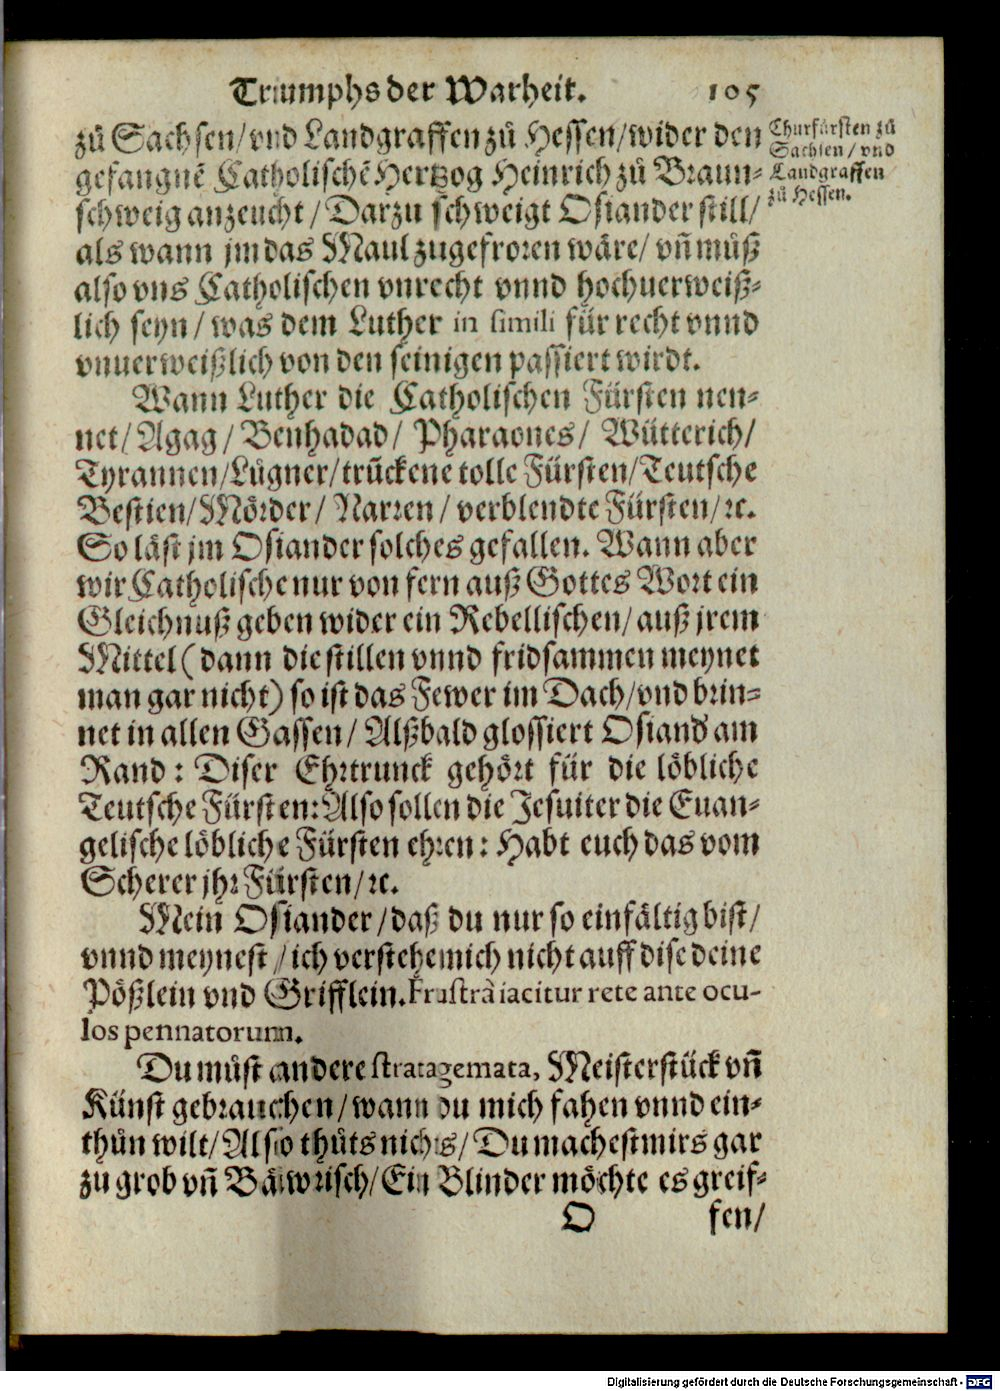 Triumphs der Warheit. 105
zů Sachsen/vnd Landgraffen zů Hessen/wider den
gefangnē Catholischē Hertzog Heinrich zů Braun-
schweig anzeucht/Darzu schweigt Osiander still/
als wann jm das Maul zugefroren wäre/ vñ můß
also vns Catholischen vnrecht vnnd hochuerweiß-
lich seyn/was dem Luther in simili für recht vnnd
vnuerweißlich von den seinigen passiert wirdt.
Churfürsten zů
Sachsen/vnd
Landgraffen
zů Hessen.
Wann Luther die Catholischen Fürsten nen-
net/Agag/Benhadad/ Pharaones/ Wütterich/
Tyrannen/Lugner/trūckene tolle Fürsten/Teutsche
Bestien/Mörder/ Narren/verblendte Fürsten/ꝛc.
So läst jm Osiander solches gefallen. Wann aber
wir Catholische nur von fern auß Gottes Wort ein
Gleichnuß geben wider ein Rebellischen/auß jrem
Mittel (dann die stillen vnnd fridsammen meynet
man gar nicht) so ist das Fewer im Dach/vnd brin-
net in allen Gassen/Alßbald glossiert Osiand' am
Rand: Diser Ehrtrunck gehört für die löbliche
Teutsche Fürsten: Also sollen die Jesuiter die Euan-
gelische löbliche Fürsten ehren: Habt euch das vom
Scherer jhr Fürsten/ꝛc.
Mein Osiander/daß du nur so einfältig bist/
vnnd meynest/ich verstehe mich nicht auff dise deine
Pößlein vnd Grifflein. Frustrà iacitur rete ante ocu-
los pennatorum.
Du můst andere stratagemata, Meisterstück vñ
Künst gebrauchen/wann du mich fahen vnnd ein-
thůn wilt/Also thůts nichts/Du machest mirs gar
zu grob vñ Bäwrisch/Ein Blinder möchte es greif-
O fen/
Digitalisierung gefördert durch die Deutsche Forschungsgemeinschaft - DFG